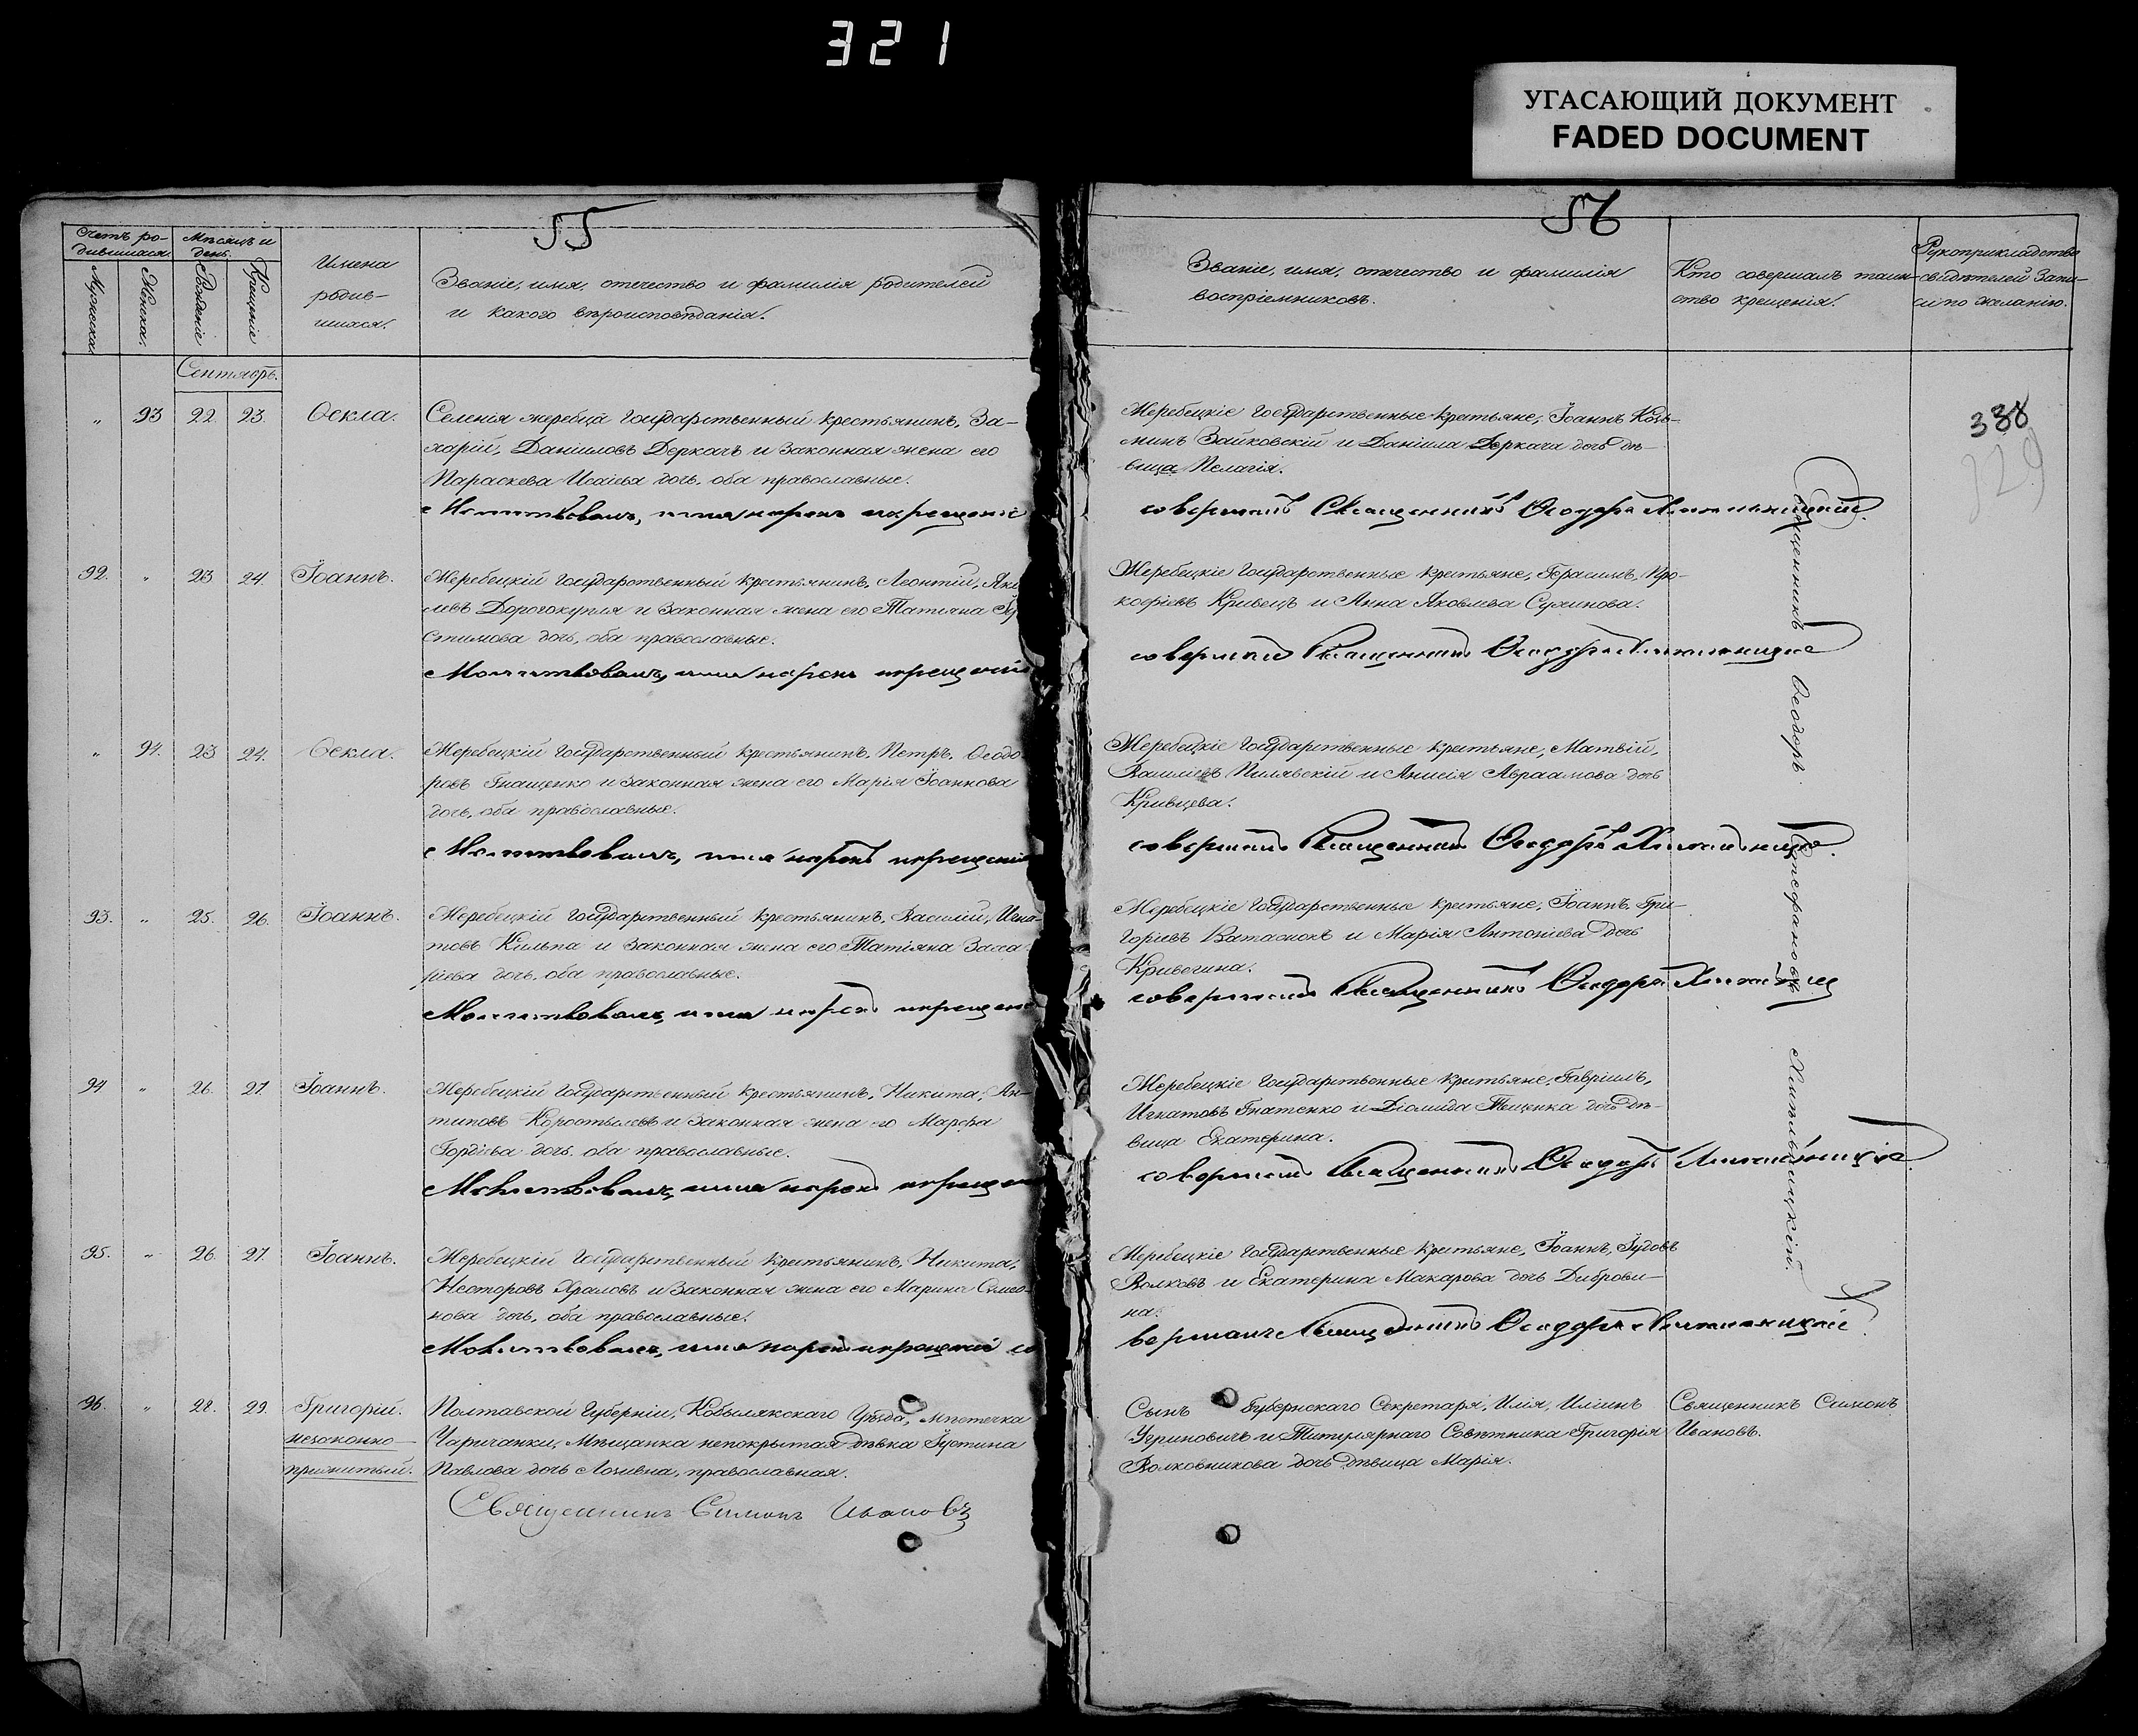 321
УГАСАЮЩИЙ ДОКУМЕНТ
FADED DOCUMENT
55
Счетъ ро-
дившихся.
Мѣсяцъ и
день.
Мужеска.
Женска.
Рожденіе
Крещеніе
Имена
родив-
шихся.
Званіе, имя, отечество и фамилія родителей
и какого вѣроисповѣданія.
Сентябрь.
" 93 22. 23. Ѳекла. Селенія Жеребца Государственный крестьянинъ, За-
харій, Даніиловъ Деркачъ и законная жена его
Параскева Исаіева дочь, оба православные.
Молитвовалъ, имя нарекъ и крещеніе
92. " 23 24. Іоаннъ. Жеребецкій Государственный крестьянинъ, Леонтій, Яко
левъ Дорогокупля и законная жена его Татіана
стимова дочь, оба православные.
Молитвовалъ, имя нарекъ и крещеніе
" 94. 23 24. Ѳекла. Жеребецкій Государственный крестьянинъ, Петръ, Ѳеодо-
ровъ Гнащенко и законная жена его Марія Іоаннова
дочь, оба православные.
Молитвовалъ, имя нарекъ и крещеніе
93. " 25. 26. Іоаннъ. Жеребецкій Государственный крестьянинъ, Василій, Игна-
товъ Кильпа и законная жена его Татіана Заха-
ріева дочь, оба православные.
Молитвовалъ, имя нарекъ и крещеніе
94 " 26. 27. Іоаннъ. Жеребецкій Государственный крестьянинъ, Никита, Ан-
типовъ Коростылевъ и законная жена его Марфа
Гордіева дочь, оба православные.
Молитвовалъ, имя нарекъ и крещен
95. " 26. 27. Іоаннъ. Жеребецкій Государственный крестьянинъ, Никита,
Несторовъ Храмовъ и законная жена его Марина Симео-
нова дочь, оба православные.
Молитвовалъ, имя нарекъ и крещеніе со
96. " 28. 29. Григорій. Полтавской Губерніи, Кобылякскаго Уѣзда, мѣстечка
незаконно-
прижитый.
Царичанки, Мѣщанка непокрытая дѣвка Іустина
Павлова дочь Лозивна, православная.
Священникъ Симонъ Ивановъ
56
Званіе, имя, отечество и фамилія
воспріемниковъ.
Кто совершалъ таин-
ство крещенія.
Рукоприкладство
свидѣтелей запи-
си по желанію.
338
329
Жеребецкіе Государственные крестьяне, Іоаннъ Козь-
минъ Зайковскій и Даніила Деркача дочь дѣ-
вица Пелагія.
совершалъ Священникъ Ѳеодоръ Хмѣльницкій.
Жеребецкіе Государственные крестьяне, Герасимъ, Про-
кофіевъ Кривецъ и Анна Яковлева Сухинова.
совершалъ Священникъ Ѳеодоръ Хмѣльницкій
Жеребецкіе Государственные крестьяне, Матвій,
Василіевъ Пилявскій и Анисія Авраамова дочь
Кривцева.
совершалъ Священникъ Ѳеодоръ Хмѣльницкій.
Жеребецкіе Государственные крестьяне, Іоаннъ, Гри-
горіевъ Ватаснокъ и Марія Антоніева дочь
Кривогина.
совершалъ Священникъ Ѳеодоръ Хмѣльниц
Жеребецкіе Государственные крестьяне, Гавріилъ,
Игнатовъ Гнатенко и Діомида Тищенка дочь дѣ-
вица Екатерина.
совершалъ Священникъ Ѳеодоръ Хмѣльницкій.
Жеребецкіе Государственные крестьяне, Іоаннъ, Іудовъ
Волковъ и Екатерина Макарова дочь Диброви-
на.
вершалъ Священникъ Ѳеодоръ Хмѣльницкій.
Сынъ Губернскаго Секретаря, Илія, Иліинъ
Угриновичъ и Титулярнаго Совѣтника Григорія
Волковникова дочь дѣвица Марія.
Священникъ Симонъ
Ивановъ.
Священникъ Ѳеодоръ Стефановъ Хмѣльницкій.